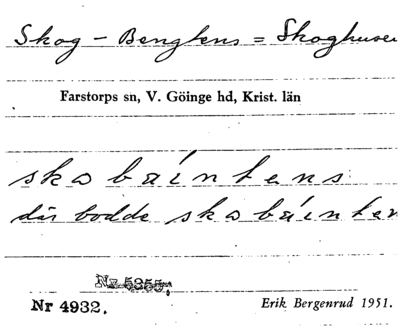 Skog-Bengtens = Skoghusen
Farstorps sn, V. Göinge hd, Krist. län
skobäintens
där bodde skobäinten
Nr 5355.
Nr 4932.
Erik Bergenrud 1951.